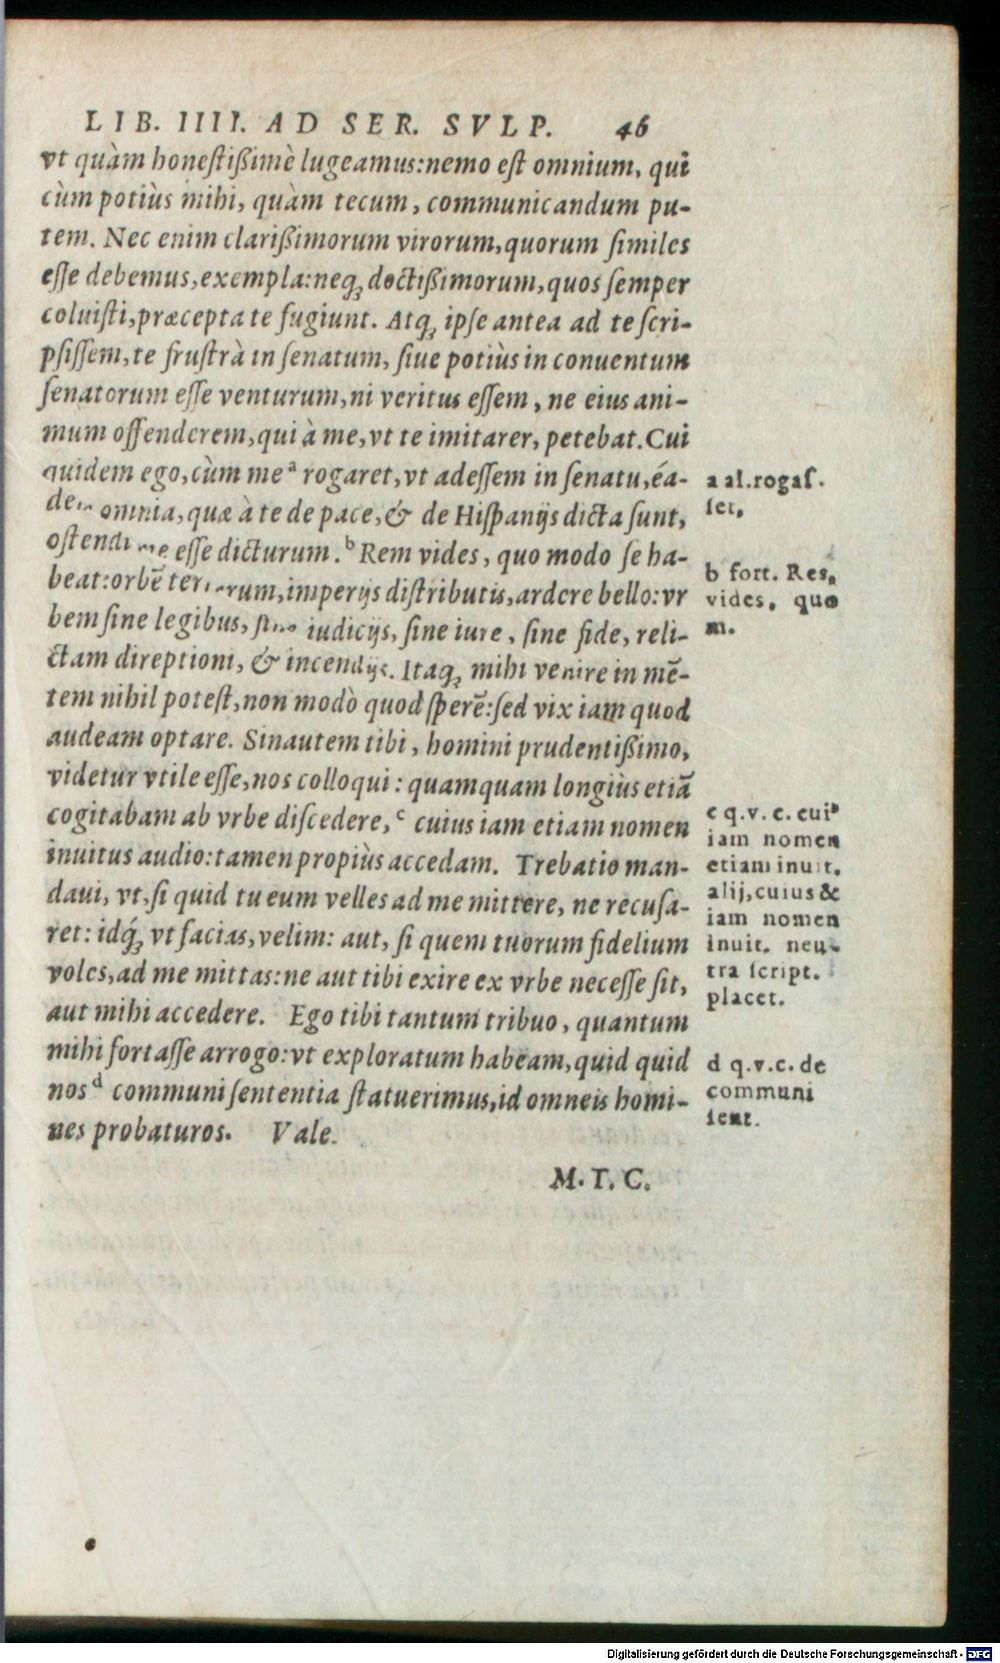 LIB. IIII. AD SER. SVLP. 46
vt quàm honestißimè lugeamus: nemo est omnium, qui
cùm potiùs mihi, quàm tecum, communicandum pu-
tem. Nec enim clarißimorum virorum, quorum similes
esse debemus, exempla: neq; doctißimorum, quos semper
coluisti, præcepta te fugiunt. Atq; ipse antea ad te scri-
psissem, te frustrà in senatum, siue potiùs in conuentum
senatorum esse venturum, ni veritus essem, ne eius ani-
mum offenderem, qui à me, vt te imitarer, petebat. Cui
quidem ego, cùm me ᵃ rogaret, vt adessem in senatu, éa-
dem omnia, quæ à te de pace, & de Hispanijs dicta sunt,
ostendi me esse dicturum. ᵇ Rem vides, quo modo se ha-
beat: orbē terrarum, imperijs distributis, ardere bello: vr
bem sine legibus, sine iudicijs, sine iure, sine fide, reli-
ctam direptioni, & incendijs. Itaq; mihi venire in mē-
tem nihil potest, non modò quod sperē: sed vix iam quod
audeam optare. Sin autem tibi, homini prudentißimo,
videtur vtile esse, nos colloqui: quamquam longiùs etiā
cogitabam ab vrbe discedere, ᶜ cuius iam etiam nomen
inuitus audio: tamen propiùs accedam. Trebatio man-
daui, vt, si quid tu eum velles ad me mittere, ne recusa-
ret: idq́; vt facias, velim: aut, si quem tuorum fidelium
voles, ad me mittas: ne aut tibi exire ex vrbe necesse sit,
aut mihi accedere. Ego tibi tantum tribuo, quantum
mihi fortasse arrogo: vt exploratum habeam, quid quid
nos ᵈ communi sententia statuerimus, id omneis homi-
nes probaturos. Vale.
M. T. C.
a al. rogas.
set.
b fort. Res,
vides, quo
m.
c q. v. c. cui⁹
iam nomen
etiam inuit.
alij, cuius &
iam nomen
inuit. neu-
tra script.
placet.
d q. v. c. de
communi
sent.
Digitalisierung gefördert durch die Deutsche Forschungsgemeinschaft - DFG